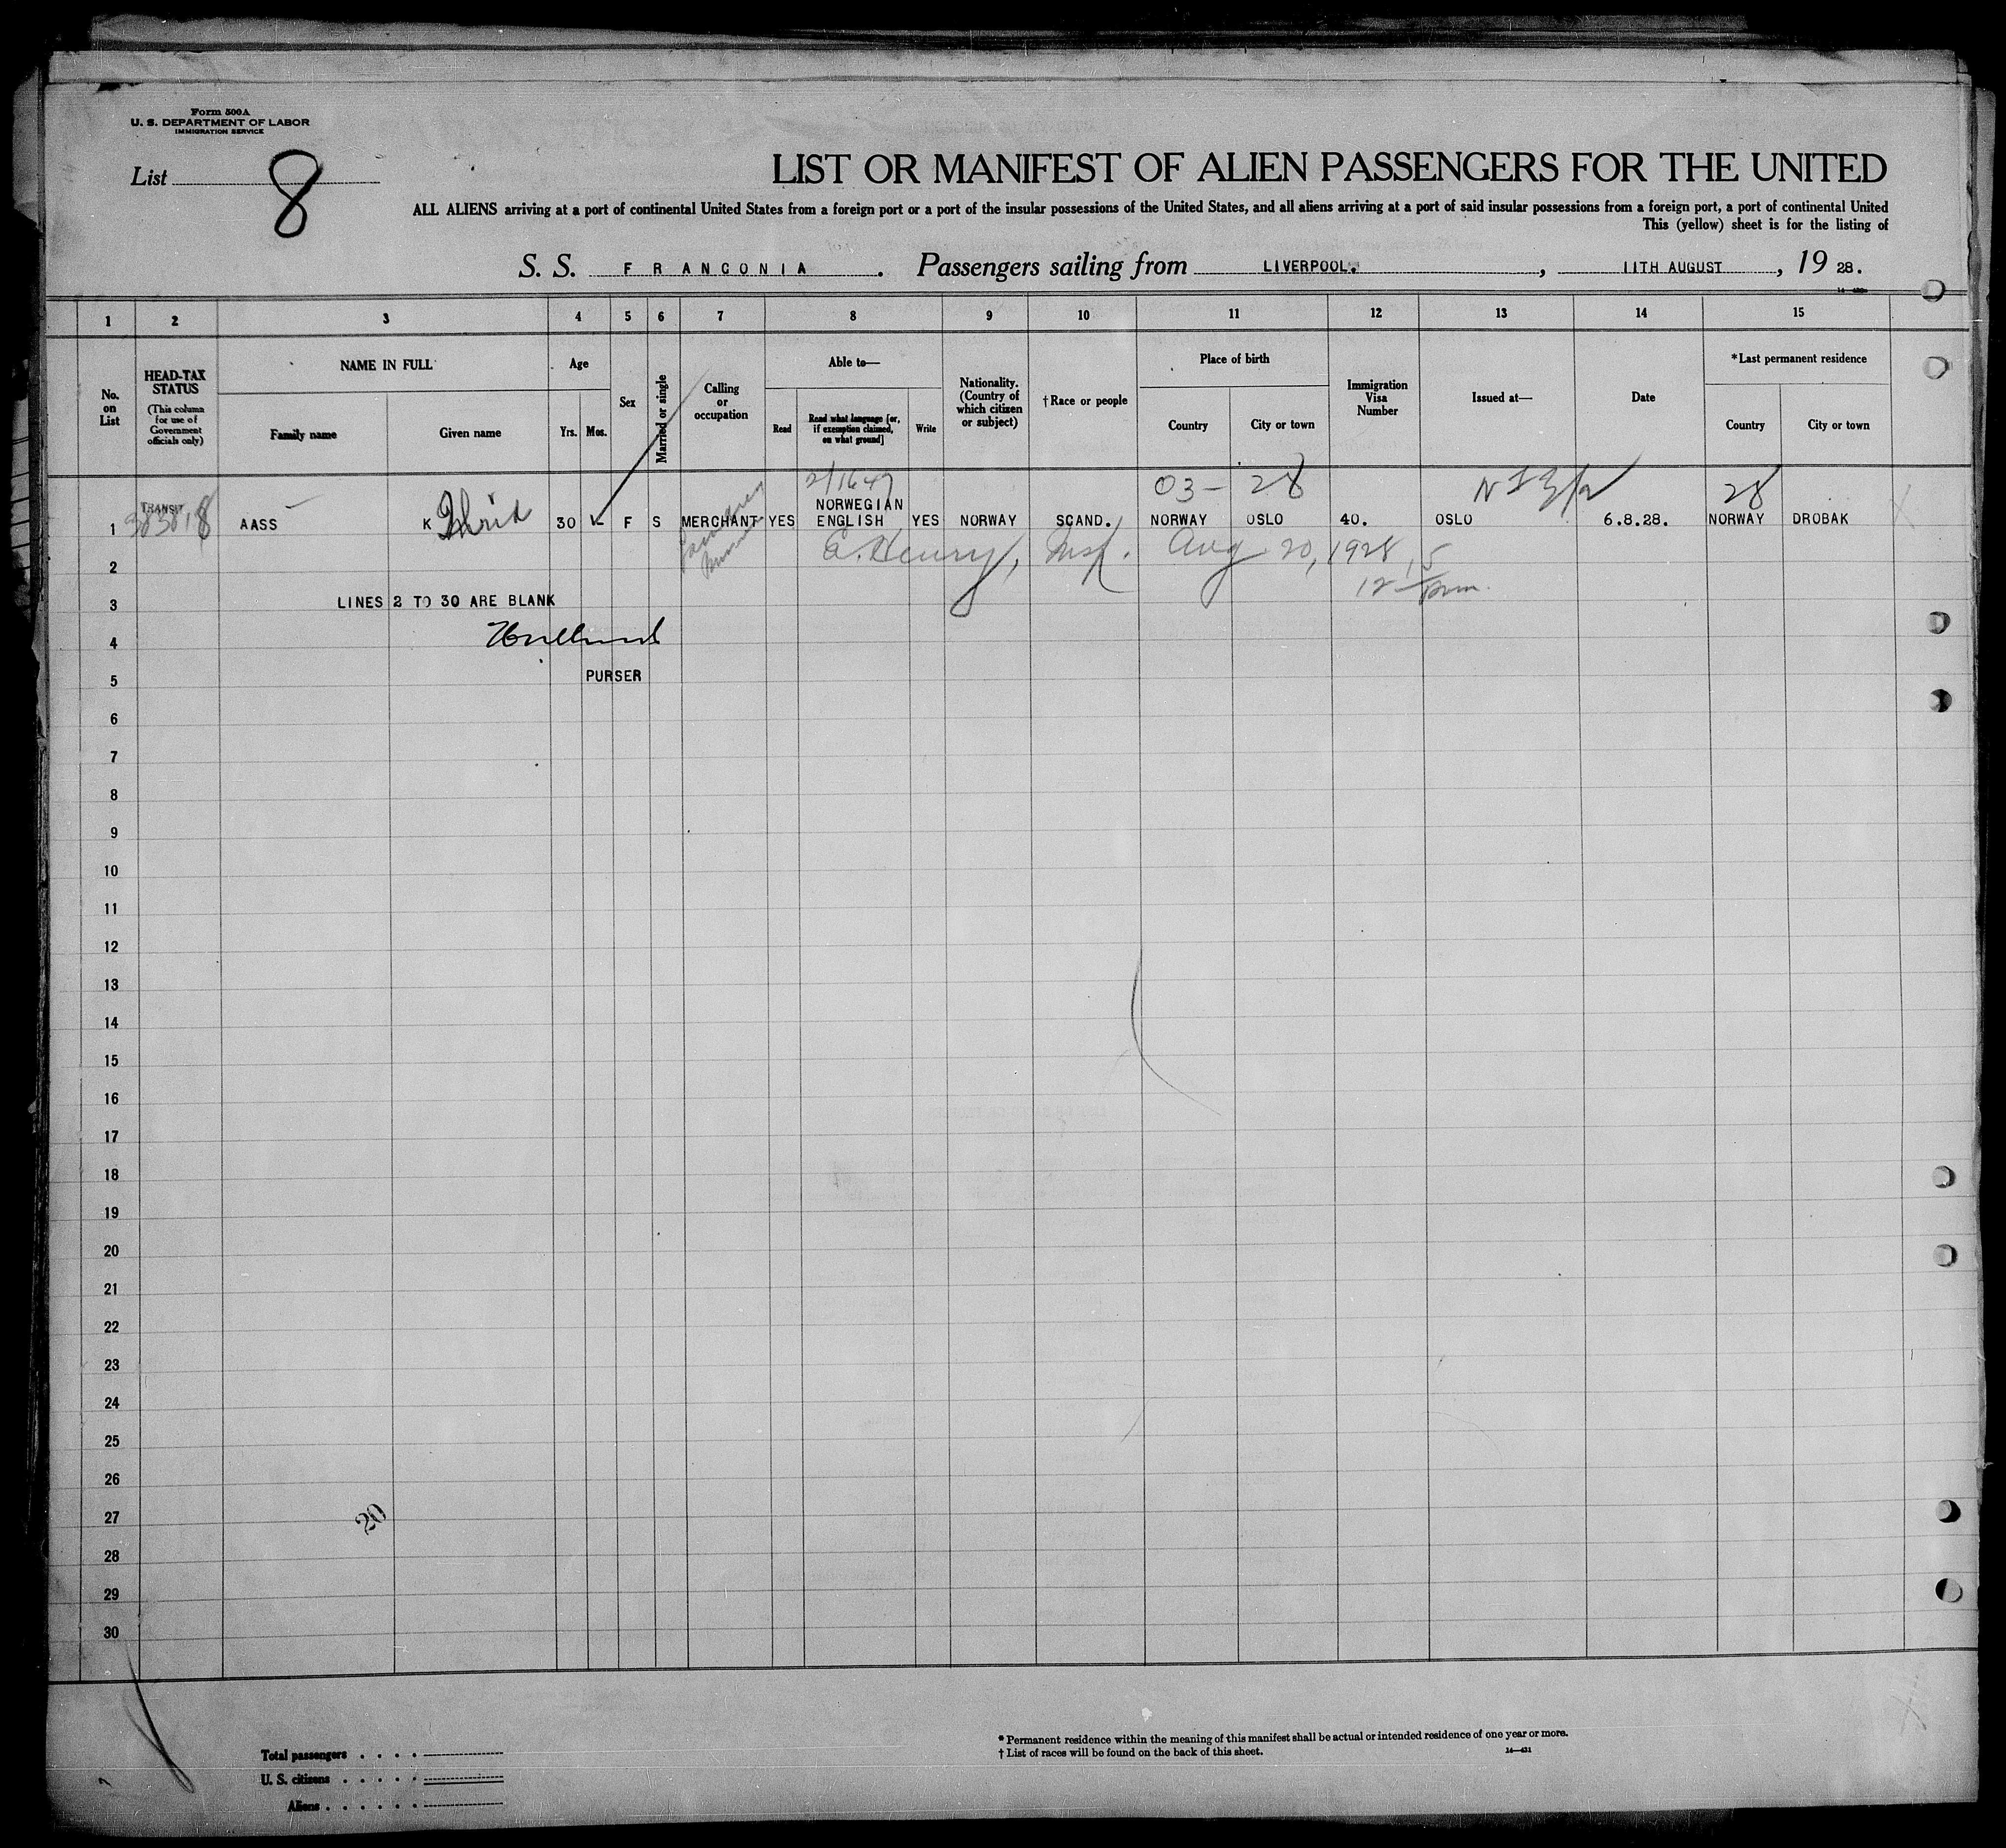 Form 500A
U. S. DEPARTMENT OF LABOR
IMMIGRATION SERVICE
List 8
LIST OR MANIFEST OF ALIEN PASSENGERS FOR THE UNITED
ALL ALIENS arriving at a port of continental United States from a foreign port or a port of the insular possessions of the United States, and all aliens arriving at a port of said insular possessions from a foreign port, a port of continental United
This (yellow) sheet is for the listing of
S. S. FRANCONIA. Passengers sailing from LIVERPOOL., 11TH AUGUST, 19 28.
1 2 3 4 5 6 7 8 9 10 11 12 13 14 15
No. on List
HEAD-TAX STATUS
(This column for use of Government officials only)
NAME IN FULL
Family name
Given name
Age
Yrs.
Mos.
Sex
Married or single
Calling or occupation
Able to—
Read
Read what language [or, if exemption claimed, on what ground]
Write
Nationality. (Country of which citizen or subject)
† Race or people
Place of birth
Country
City or town
Immigration Visa Number
Issued at—
Date
* Last permanent residence
Country
City or town
2/1647 03- 28 28
TRANSIT NORWEGIAN
1 AASS K 30 F S MERCHANT YES ENGLISH YES NORWAY SCAND. NORWAY OSLO 40. OSLO 6.8.28. NORWAY DROBAK
2 E. Henry, Insp. Aug 20, 1928
3 LINES 2 TO 30 ARE BLANK
4
5 PURSER
6
7
8
9
10
11
12
13
14
15
16
17
18
19
20
21
22
23
24
25
26
27 20
28
29
30
Total passengers
U. S. citizens
Aliens
* Permanent residence within the meaning of this manifest shall be actual or intended residence of one year or more.
† List of races will be found on the back of this sheet.
14—431